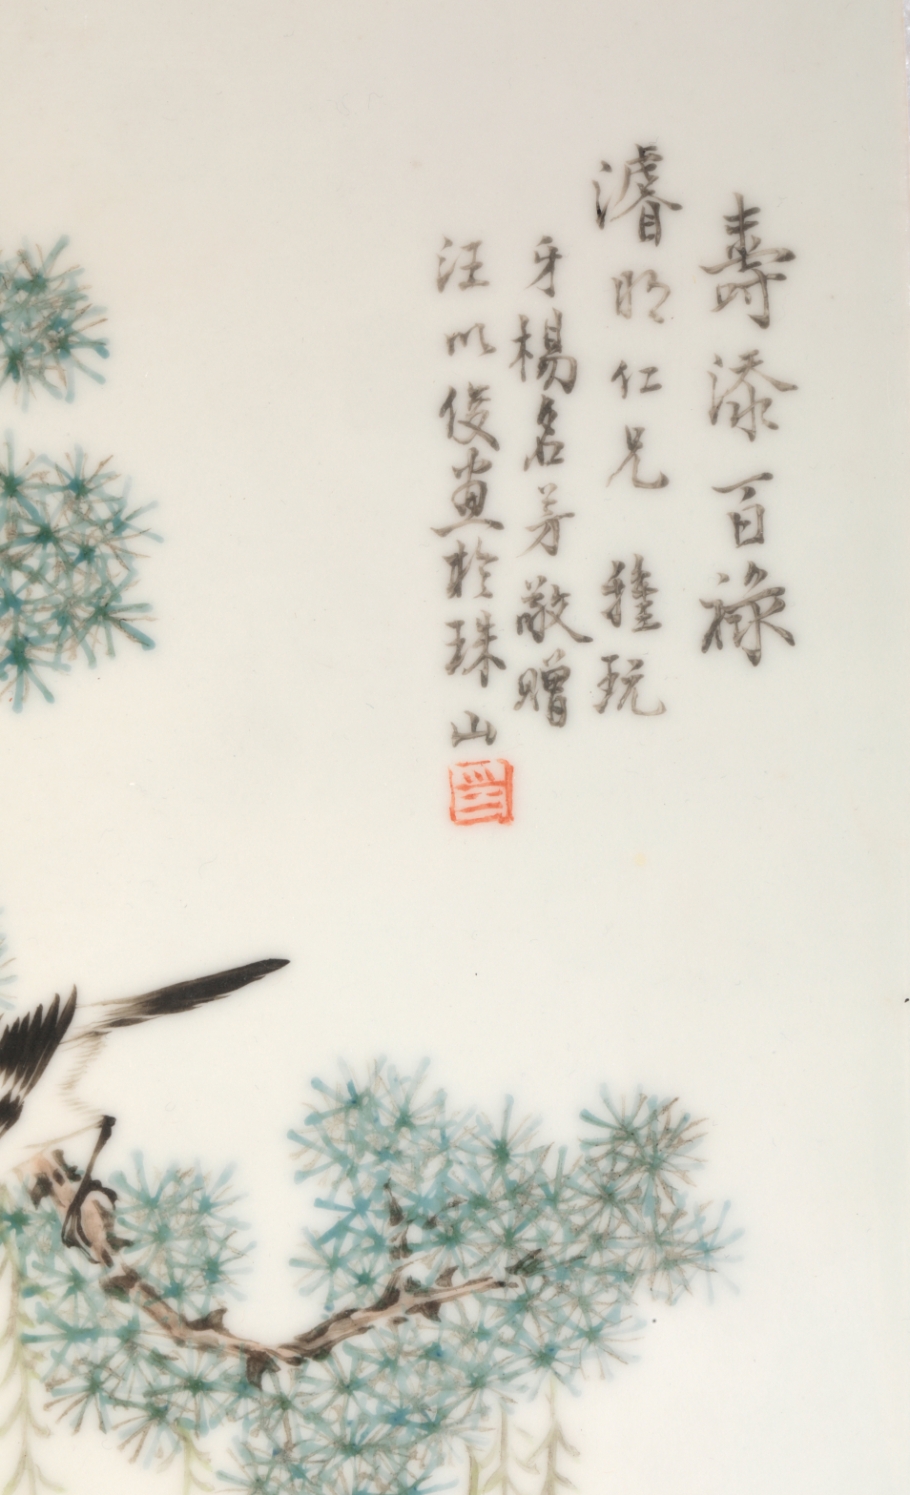 壽添百祿
濬明仁兄 雅玩
楊名芳敬贈
汪以俊畫於珠山